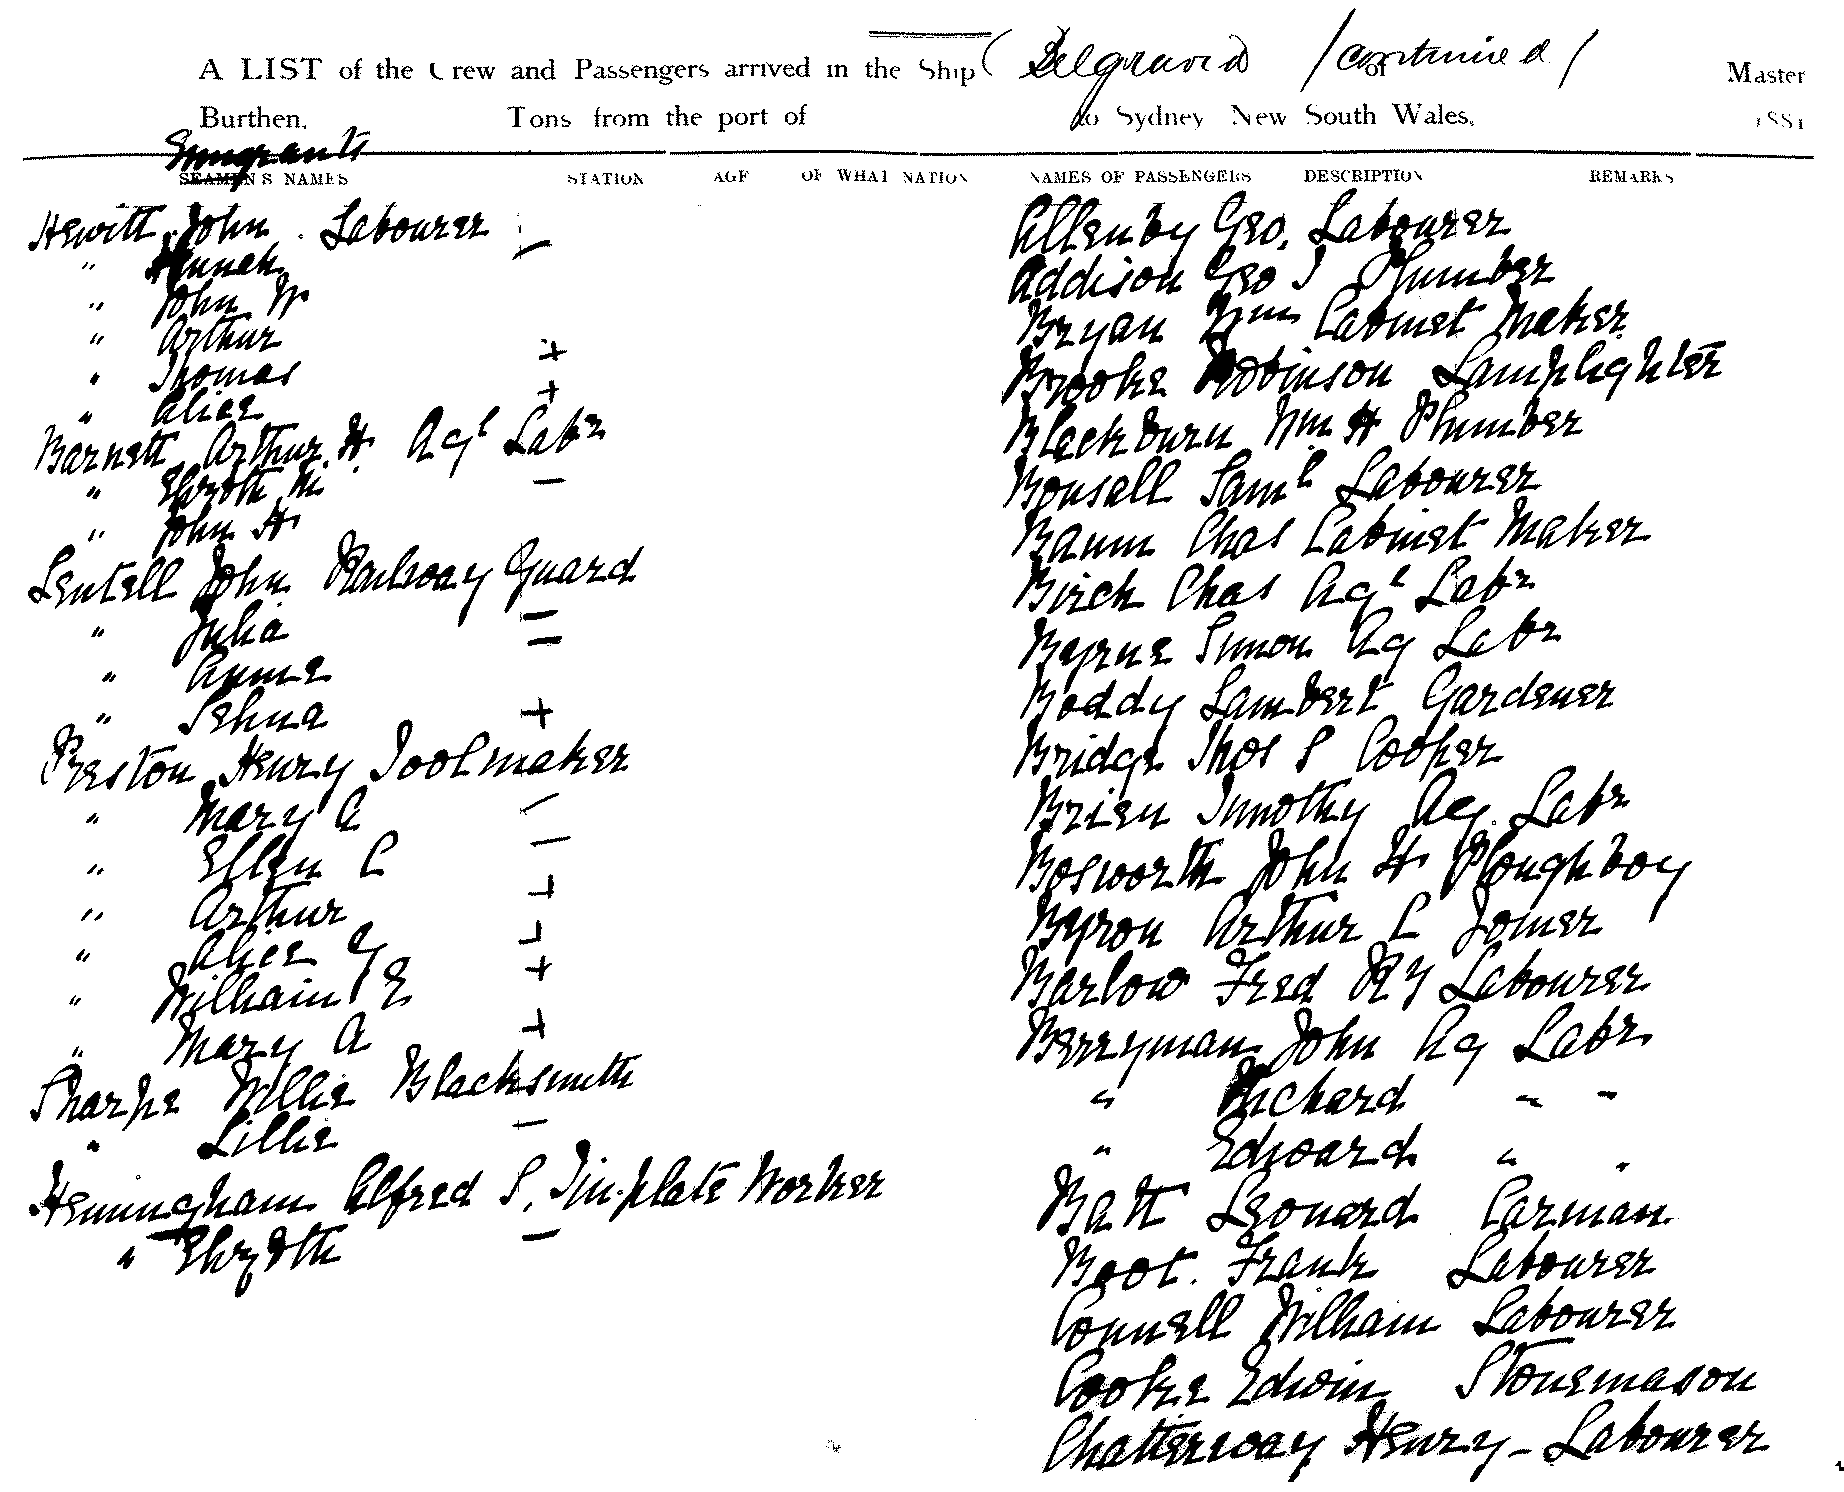 A LIST of the Crew and Passengers arrived in the Ship ( Belgravia / continued / of Master
Burthen, Tons from the port of to Sydney New South Wales, 1881
Emigrants
SEAMEN'S NAMES STATION AGE OF WHAT NATION NAMES OF PASSENGERS DESCRIPTION REMARKS
Hewitt John . Labourer
" Hannah
" John W
" Arthur
" Thomas
" Alice
Barnett Arthur H Agl Labr
" Elizbth M
" John H
Sentell John Railway Guard
" Julia
" Annie
" Selina
Preston Henry Toolmaker
" Mary A
" Ellen C
" Arthur
" Alice G
" William E
" Mary A
Sharpe Willie Blacksmith
" Lillie
Henningham Alfred S. Tin-plate Worker
" Elizbth
Allenby Geo. Labourer
Addison Geo J Plumber
Bryan Wm Cabinet Maker
Brooke Robinson Lamplighter
Blackburn Wm H Plumber
Bonsall Saml Labourer
Baum Chas Cabinet Maker
Birch Chas Agl Labr
Byrne Simon Ag Labr
Boddy Lambert Gardener
Bridge Thos S Cooper
Brien Timothy Ag. Labr
Bosworth John H Ploughboy
Byron Arthur C Joiner
Barlow Fred Ry Labourer
Berryman John Ag Labr
" Richard " "
" Edward " "
Batt Leonard Carman
Boot. Frank Labourer
Connell William Labourer
Cooke Edwin Stonemason
Chatterway Henry - Labourer